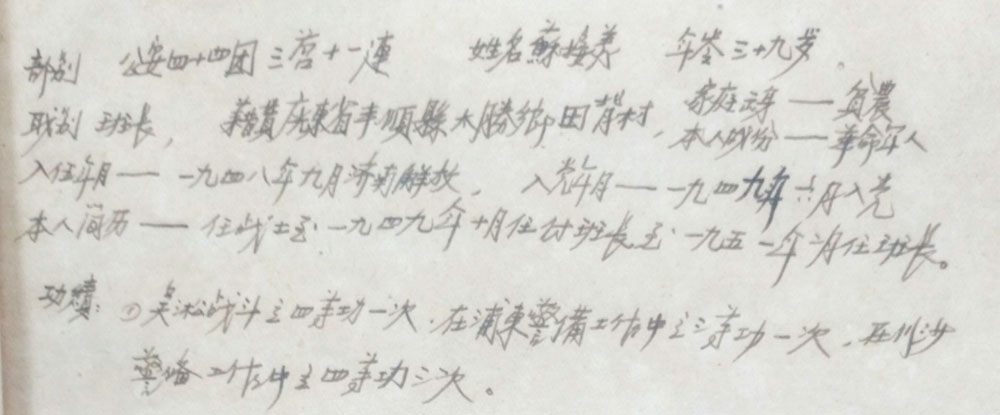 部别 公安四十四团三营十一連 姓名蘇接养 年令三十九岁。
职别 班长, 籍貫広東省丰順縣大勝鄉田背村, 家庭出身——貧農
本人成份——革命军人
入伍年月——一九四八年九月济南解放, 入党年月——一九四九年六月入党
本人简历——任战士至一九四九年十月任付班长至一九五一年 月任班长。
功績: ①吴淞战斗立四等功一次.在浦東警備工作中立三等功一次,在川沙
警備工作中立四等功二次。